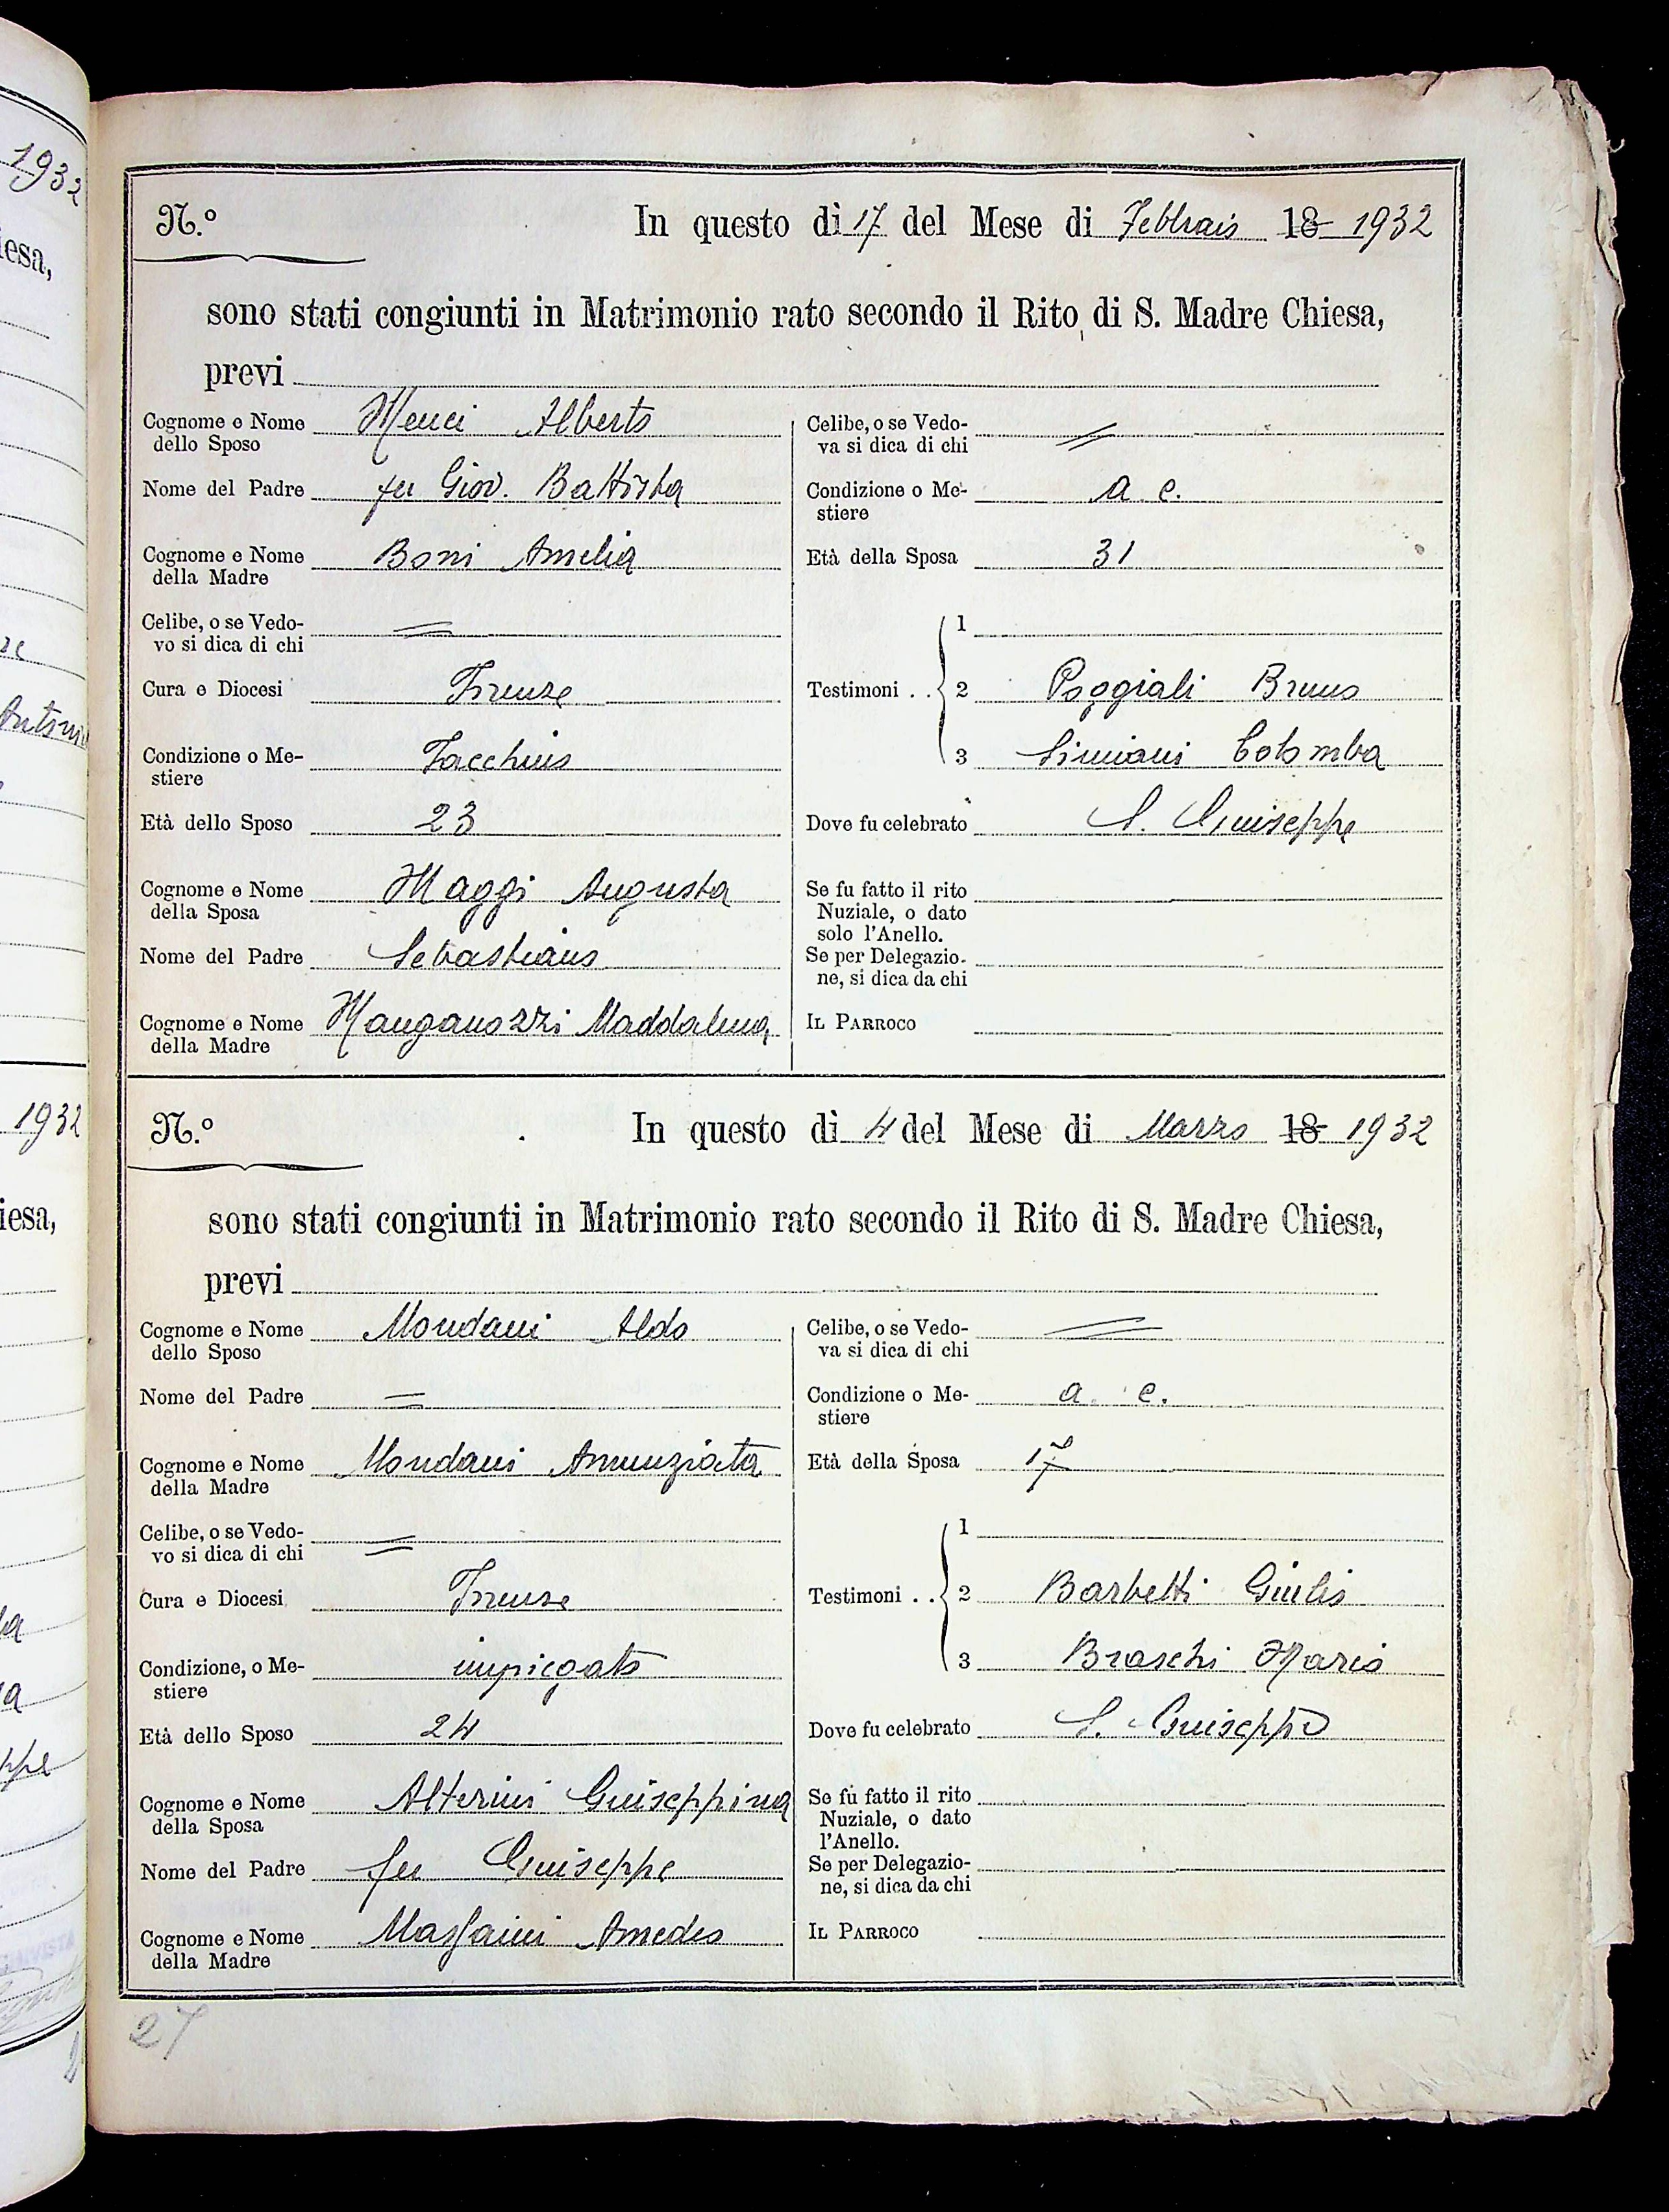 N.º In questo dì 17 del Mese di Febbraio 18 1932
sono stati congiunti in Matrimonio rato secondo il Rito di S. Madre Chiesa,
previ
Cognome e Nome dello Sposo Menci Alberto
Nome del Padre fu Giov. Battista
Cognome e Nome della Madre Boni Amelia
Celibe, o se Vedovo si dica di chi =
Cura e Diocesi Firenze
Condizione o Mestiere Facchino
Età dello Sposo 23
Cognome e Nome della Sposa Maggi Augusta
Nome del Padre Sebastiano
Cognome e Nome della Madre Manganozzi Maddalena
Celibe, o se Vedova si dica di chi =
Condizione o Mestiere a. c.
Età della Sposa 31
Testimoni . . 1
2 Poggiali Bruno
3 Simiani Colomba
Dove fu celebrato S. Giuseppe
Se fu fatto il rito Nuziale, o dato solo l'Anello.
Se per Delegazione, si dica da chi
Il Parroco
N.º In questo dì 4 del Mese di Marzo 18 1932
sono stati congiunti in Matrimonio rato secondo il Rito di S. Madre Chiesa,
previ
Cognome e Nome dello Sposo Mondani Aldo
Nome del Padre =
Cognome e Nome della Madre Mondani Annunziata
Celibe, o se Vedovo si dica di chi =
Cura e Diocesi Firenze
Condizione, o Mestiere impiegato
Età dello Sposo 24
Cognome e Nome della Sposa Alterini Giuseppina
Nome del Padre fu Giuseppe
Cognome e Nome della Madre Masfaini Amedea
Celibe, o se Vedova si dica di chi =
Condizione o Mestiere a. c.
Età della Sposa 17
Testimoni . . 1
2 Barbetti Giulio
3 Braschi Mario
Dove fu celebrato S. Giuseppe
Se fu fatto il rito Nuziale, o dato l'Anello.
Se per Delegazione, si dica da chi
Il Parroco
27